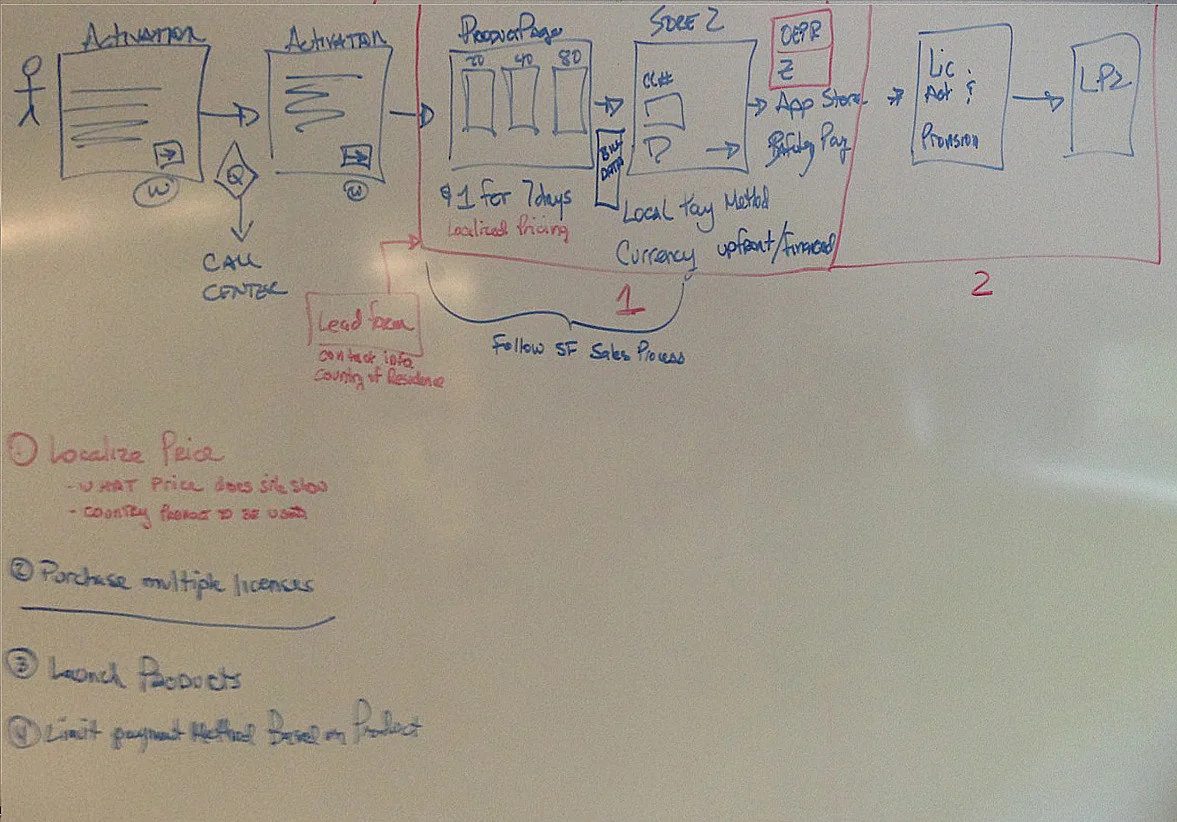 Activation
Activation
Product Page
20 40 80
Store 2
CC#
OEPR
Z
App Store
Pay
Bill
Data
Lic.
Act &
Provision
LP2
W
Q
W
CALL
CENTER
$1 for 7days
Localized Pricing
Local Pay Method
Currency upfront/Financed
1
2
Lead form
contact info
Country of Residence
Follow SF Sales Process
① Localize Price
- WHAT Price does site show
- COUNTRY PRODUCT TO BE USED
② Purchase multiple licenses
③ Launch Products
④ Limit payment Method Based on Product